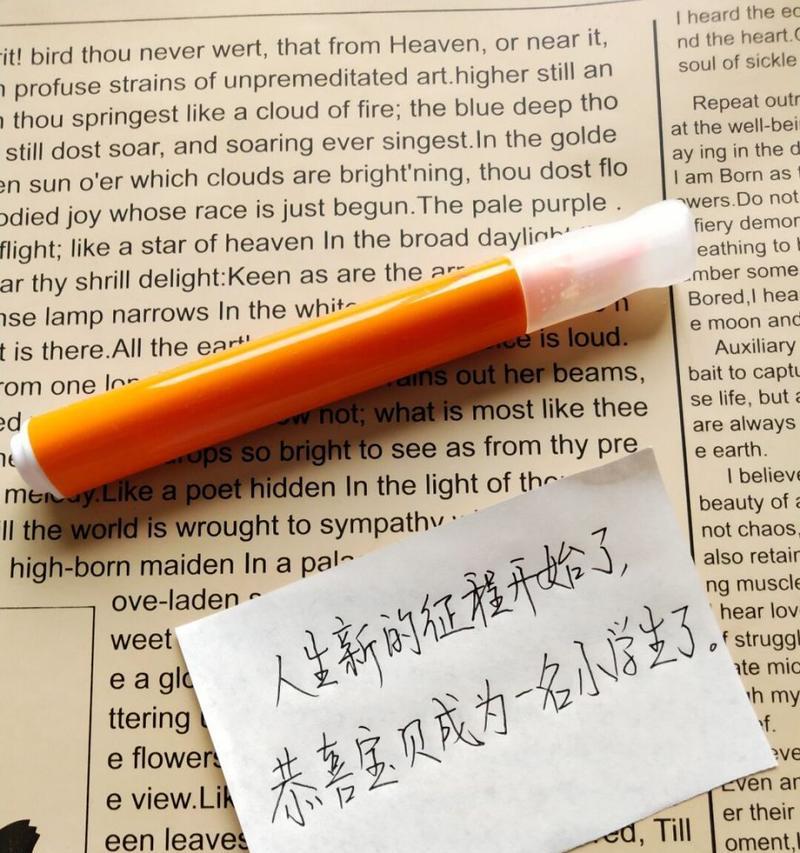 rit! bird thou never wert, that from Heaven, or near it,
profuse strains of unpremeditated art.higher still an
thou springest like a cloud of fire; the blue deep tho
still dost soar, and soaring ever singest.In the golde
en sun o'er which clouds are bright'ning, thou dost flo
odied joy whose race is just begun.The pale purple .
flight; like a star of heaven In the broad daylight
ar thy shrill delight:Keen as are the
nse lamp narrows In the white
t is there.All the earth
is loud.
rom one
out her beams,
not; what is most like thee
so bright to see as from thy pre
melody.Like a poet hidden In the light of
ill the world is wrought to sympathy
high-born maiden In a
ove-laden
weet
e a
ttering
e flowers
e view.
een leaves
Till
I heard the
nd the heart.
soul of sickle
Repeat
at the
ay ing in the
I am Born as
owers.Do not
fiery
eathing to
mber some
Bored,I
e moon and
Auxiliary
bait to
se life, but
are always
e earth.
I believe
beauty of
not chaos,
also retain
ng muscle
hear
struggl
my
Even
er their
oment,
人生新的征程开始了,
恭喜宝贝成为一名小学生了。